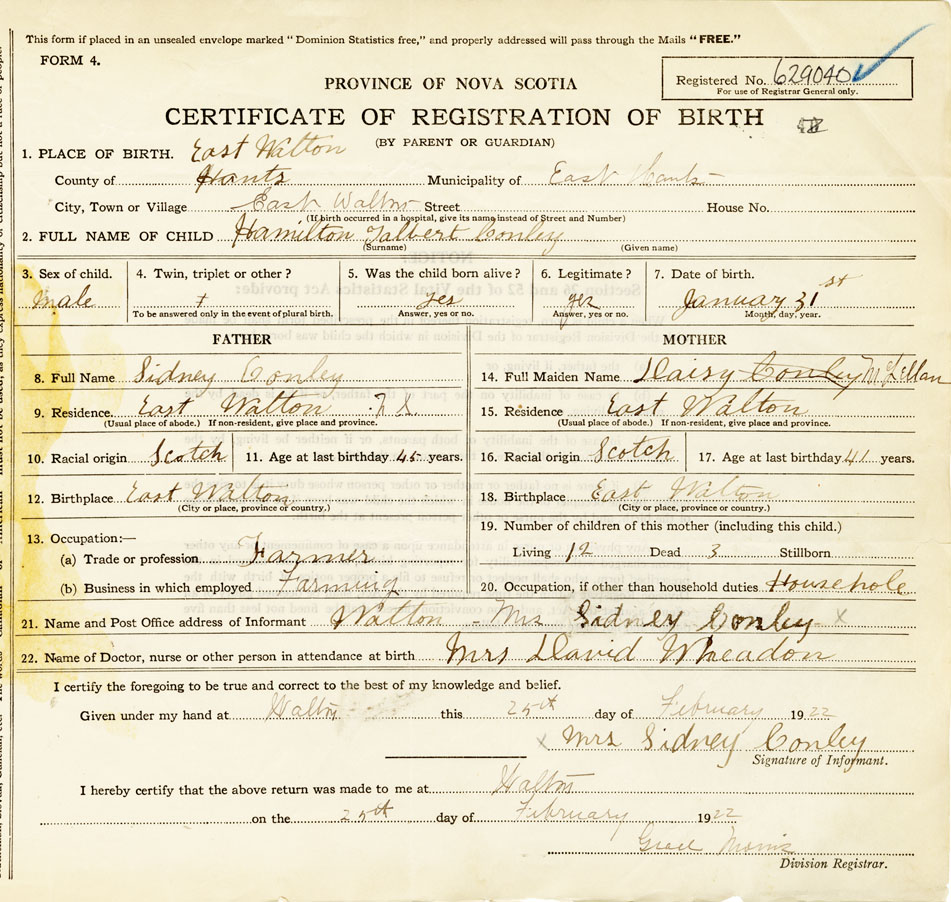 This form if placed in an unsealed envelope marked "Dominion Statistics free," and properly addressed will pass through the Mails "FREE."
FORM 4.
Registered No. 629040
For use of Registrar General only.
PROVINCE OF NOVA SCOTIA
CERTIFICATE OF REGISTRATION OF BIRTH
(BY PARENT OR GUARDIAN)
1. PLACE OF BIRTH. East Walton
County of Hants Municipality of East Hants
City, Town or Village East Walton Street House No.
(If birth occurred in a hospital, give its name instead of Street and Number)
2. FULL NAME OF CHILD Hamilton Talbert Conley
(Surname) (Given name)
3. Sex of child. 4. Twin, triplet or other? 5. Was the child born alive? 6. Legitimate? 7. Date of birth.
Male yes yes January 31st
To be answered only in the event of plural birth. Answer, yes or no. Answer, yes or no. Month, day, year.
FATHER MOTHER
8. Full Name Sidney Conley 14. Full Maiden Name Daisy Conley McLellan
9. Residence. East Walton 15. Residence East Walton
(Usual place of abode.) If non-resident, give place and province. (Usual place of abode.) If non-resident, give place and province.
10. Racial origin Scotch 11. Age at last birthday 45 years. 16. Racial origin Scotch 17. Age at last birthday 41 years.
12. Birthplace East Walton 18. Birthplace East Walton
(City or place, province or country.) (City or place, province or country.)
13. Occupation:— 19. Number of children of this mother (including this child.)
(a) Trade or profession Farmer Living 12 Dead 3 Stillborn
(b) Business in which employed Farming 20. Occupation, if other than household duties Household
21. Name and Post Office address of Informant Walton - Mrs Sidney Conley X
22. Name of Doctor, nurse or other person in attendance at birth Mrs David Wheadon
I certify the foregoing to be true and correct to the best of my knowledge and belief.
Given under my hand at Walton this 25th day of February 1922
X Mrs Sidney Conley
Signature of Informant.
I hereby certify that the above return was made to me at Walton
on the 25th day of February 1922
Grace Morris
Division Registrar.